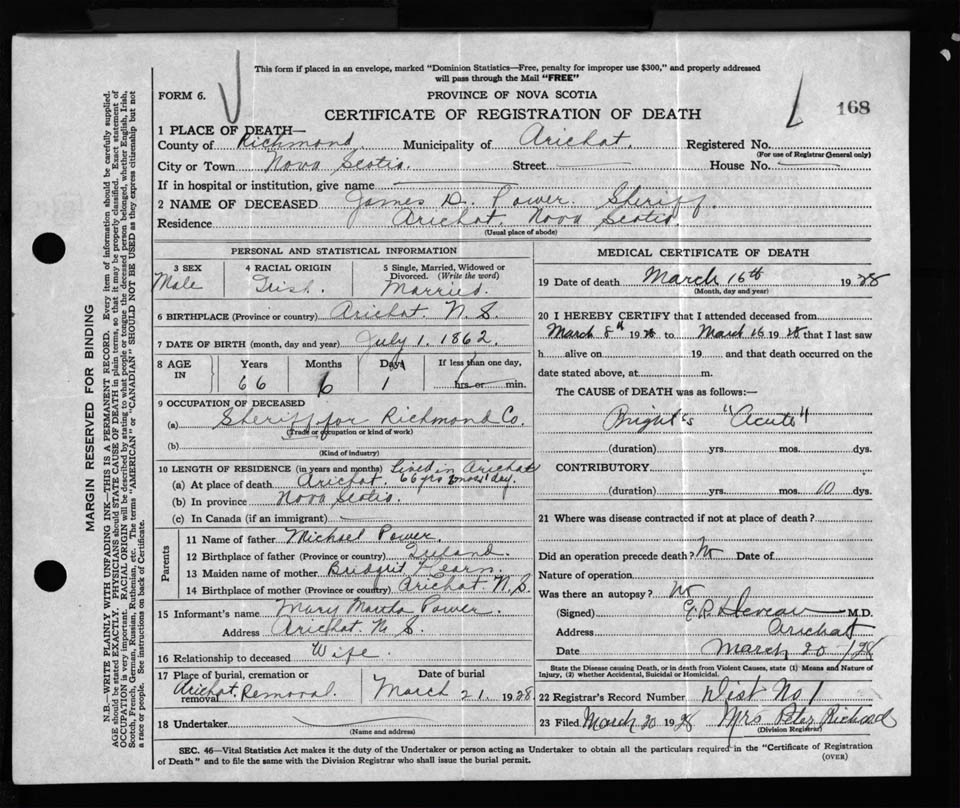 This form if placed in an envelope, marked "Dominion Statistics—Free, penalty for improper use $300," and properly addressed
will pass through the Mail "FREE"
FORM 6.
PROVINCE OF NOVA SCOTIA
CERTIFICATE OF REGISTRATION OF DEATH
168
1 PLACE OF DEATH—
County of Richmond. Municipality of Arichat. Registered No.
(For use of Registrar General only)
City or Town Nova Scotia. Street House No.
If in hospital or institution, give name
2 NAME OF DECEASED James D. Power. Sheriff.
Residence Arichat. Nova Scotia.
(Usual place of abode)
PERSONAL AND STATISTICAL INFORMATION
3 SEX
Male
4 RACIAL ORIGIN
Irish.
5 Single, Married, Widowed or
Divorced. (Write the word)
Married.
6 BIRTHPLACE (Province or country) Arichat. N. S.
7 DATE OF BIRTH (month, day and year) July 1. 1862.
8 AGE
IN
Years
66
Months
6
Days
1
If less than one day,
hrs or min.
9 OCCUPATION OF DECEASED
(a) Sheriff for Richmond Co.
(Trade or occupation or kind of work)
(b)
(Kind of industry)
10 LENGTH OF RESIDENCE (in years and months) Lived in Arichat
(a) At place of death Arichat. 66 yrs 6 mos 1 day.
(b) In province Nova Scotia.
(c) In Canada (if an immigrant)
Parents
11 Name of father Michael Power.
12 Birthplace of father (Province or country) Ireland.
13 Maiden name of mother Bridgit
14 Birthplace of mother (Province or country) Arichat N. S.
15 Informant's name Mary Power.
Address Arichat. N. S.
16 Relationship to deceased Wife.
17 Place of burial, cremation or
removal Arichat. Removal.
Date of burial
March 21. 1928
18 Undertaker
(Name and address)
MEDICAL CERTIFICATE OF DEATH
19 Date of death March 16th 1928
(Month, day and year)
20 I HEREBY CERTIFY that I attended deceased from
March 8th 1928 to March 16 1928 that I last saw
h alive on 19 and that death occurred on the
date stated above, at m.
The CAUSE OF DEATH was as follows:—
Bright's "Acute"
(duration) yrs. mos. dys.
CONTRIBUTORY
(duration) yrs. mos. 10 dys.
21 Where was disease contracted if not at place of death?
Did an operation precede death? No Date of
Nature of operation
Was there an autopsy? No
(Signed) M.D.
Address Arichat
Date March 20 /28
State the Disease causing Death, or in death from Violent Causes, state (1) Means and Nature of
Injury, (2) whether Accidental, Suicidal or Homicidal.
22 Registrar's Record Number Dist No 1
23 Filed March 20 1928 Mrs Peter Richard
(Division Registrar)
SEC. 46—Vital Statistics Act makes it the duty of the Undertaker or person acting as Undertaker to obtain all the particulars required in the "Certificate of Registration
of Death" and to file the same with the Division Registrar who shall issue the burial permit.
(OVER)
MARGIN RESERVED FOR BINDING
N.B.—WRITE PLAINLY WITH UNFADING INK—THIS IS A PERMANENT RECORD. Every item of information should be carefully supplied.
AGE should be stated EXACTLY. PHYSICIANS should STATE CAUSE OF DEATH in plain terms, so that it may be properly classified. Exact statement of
OCCUPATION is very important. RACIAL ORIGIN will be described by stating to what people or tongue the deceased person belonged, whether English, Irish,
Scotch, French, German, Russian, Ruthenian, etc. The terms "AMERICAN" or "CANADIAN" SHOULD NOT BE USED as they express citizenship but not
a race or people. See instructions on back of Certificate.